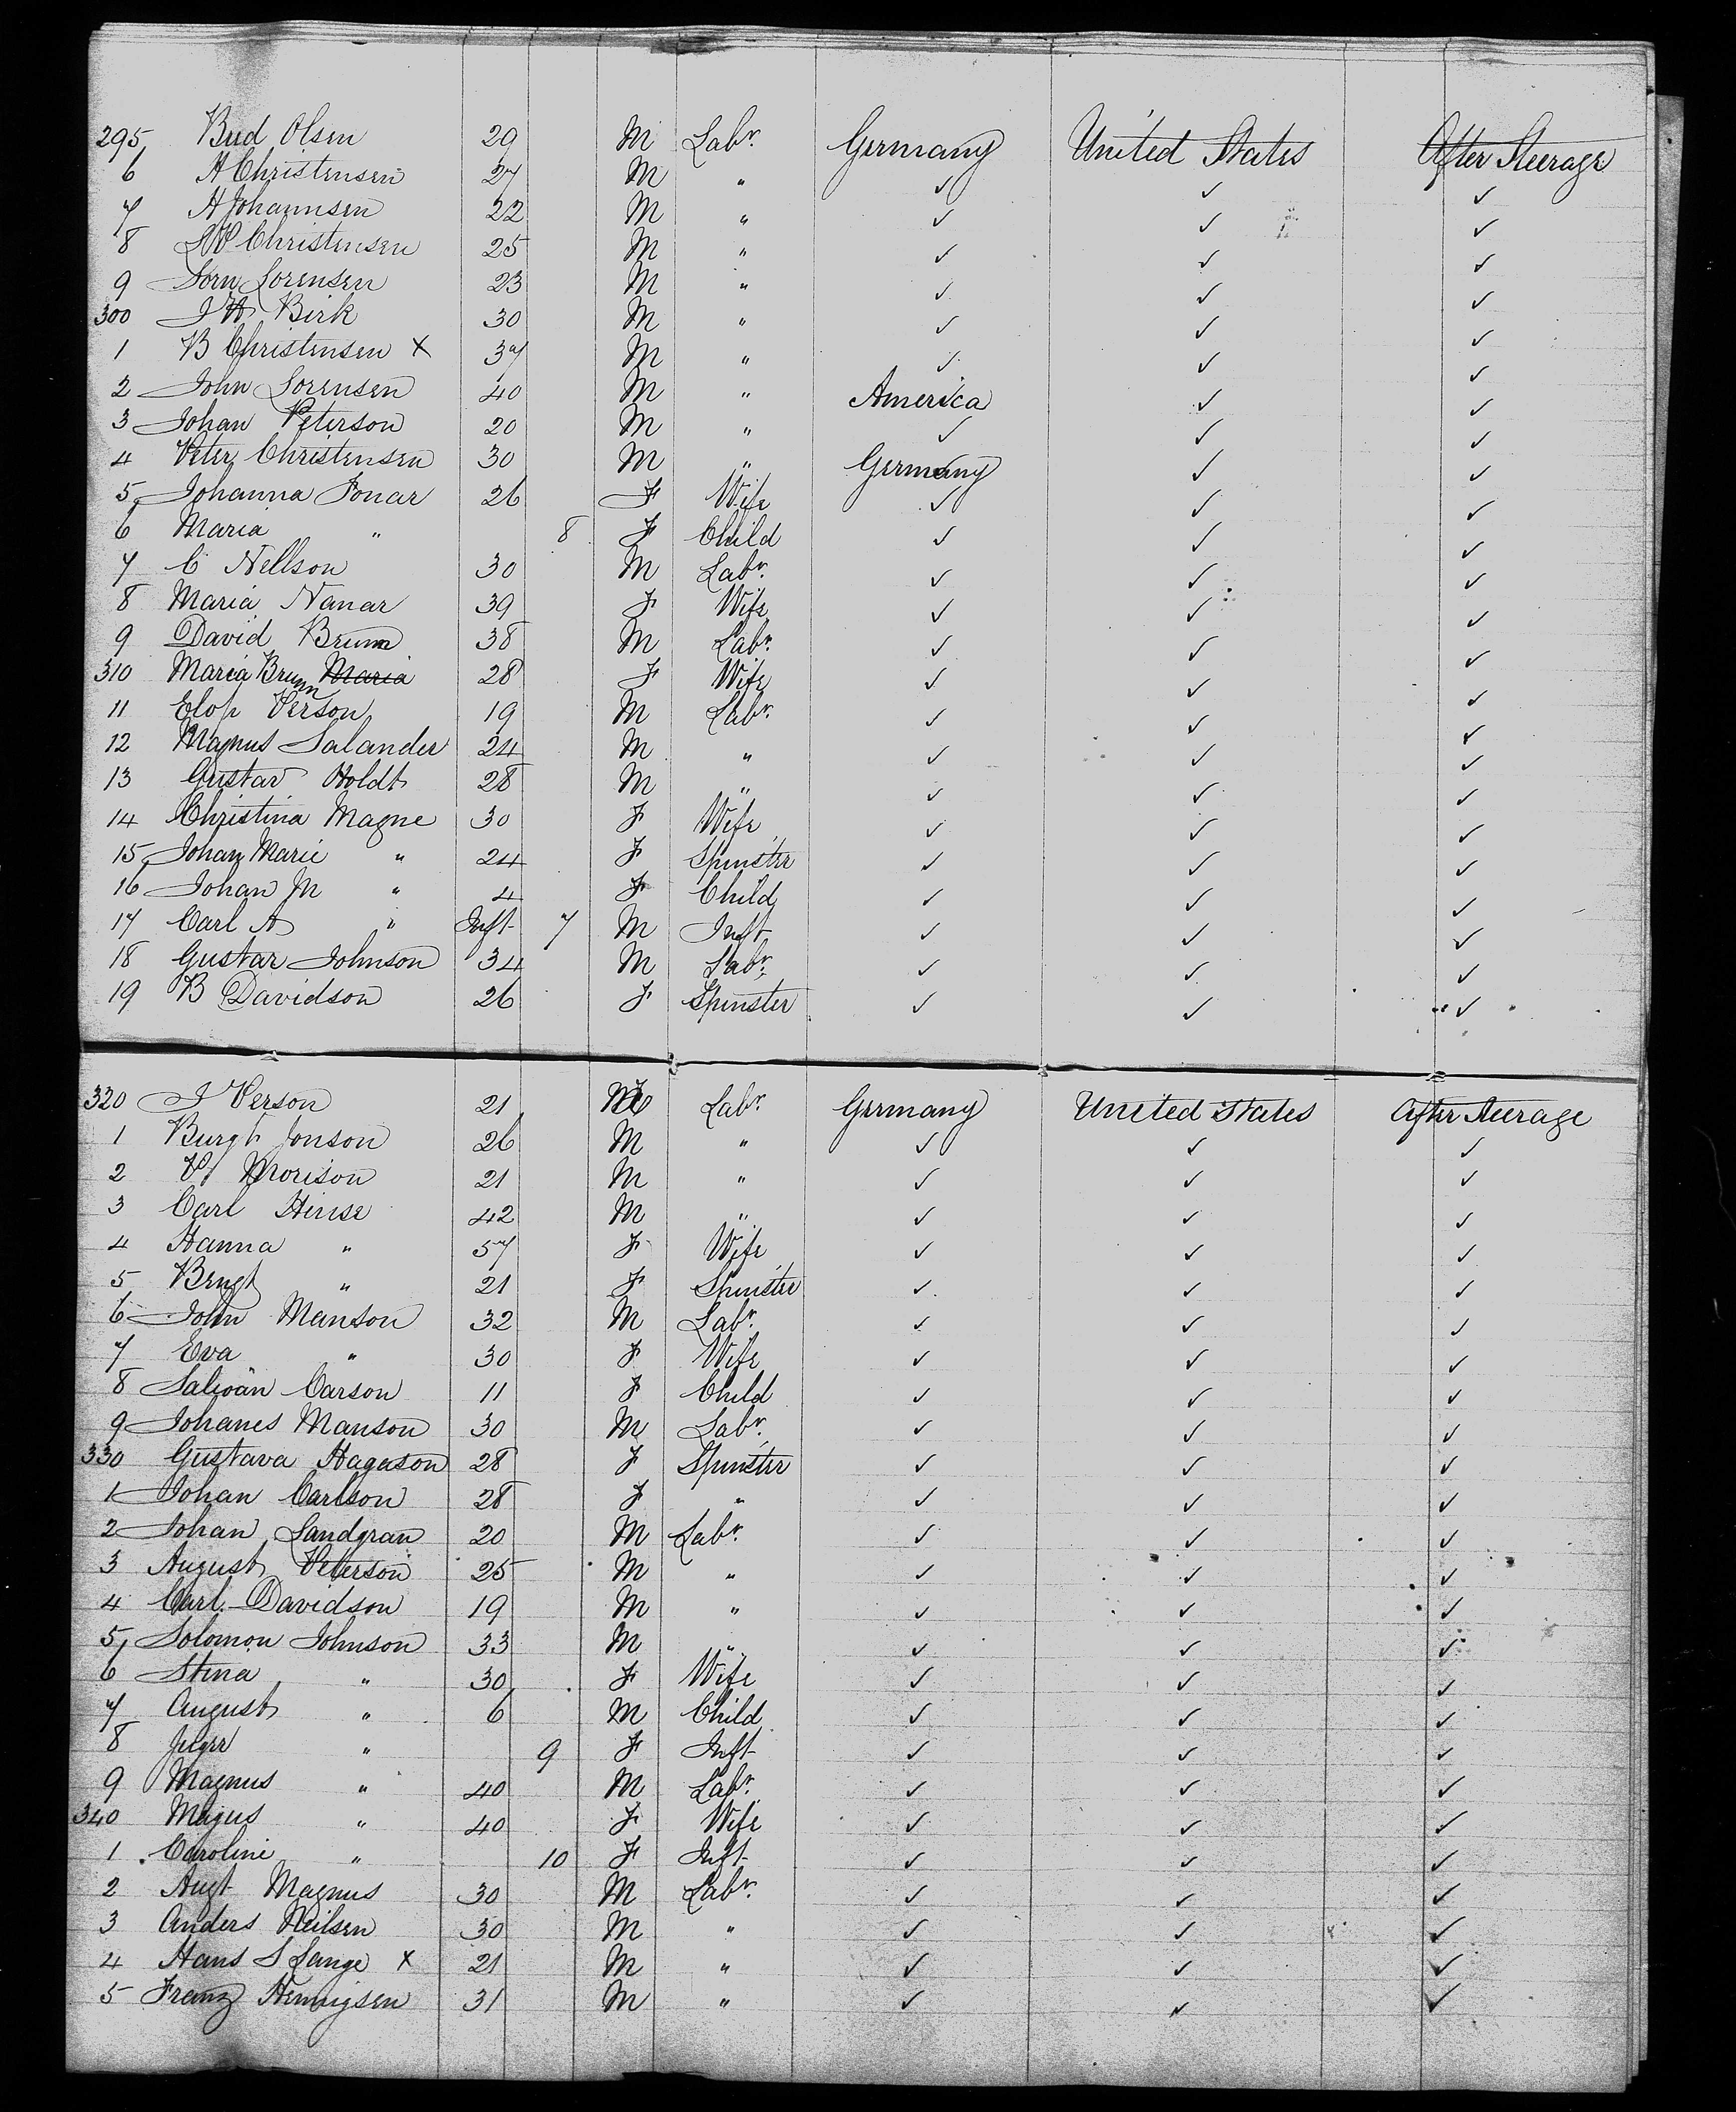 295 Bud Olsen 29 M Labr. Germany United States After Steerage
6 A Christensen 27 M " ✓ ✓ ✓
7 A Johannsen 22 M " ✓ ✓ ✓
8 Christensen 25 M " ✓ ✓ ✓
9 Sorn Sorensen 23 M " ✓ ✓ ✓
300 Birk 30 M " ✓ ✓ ✓
1 B Christensen X 37 M " ✓ ✓ ✓
2 John Sorensen 40 M " America ✓ ✓
3 Johan Peterson 20 M " ✓ ✓ ✓
4 Peter Christensen 30 M " Germany ✓ ✓
5 Johanna Jonar 26 F Wife ✓ ✓ ✓
6 Maria " 8 F Child ✓ ✓ ✓
7 C Nellson 30 M Labr. ✓ ✓ ✓
8 Maria Nanar 39 F Wife ✓ ✓ ✓
9 David Brunn 38 M Labr. ✓ ✓ ✓
310 Maria Brunn Maria 28 F Wife ✓ ✓ ✓
11 Elof Person 19 M Labr. ✓ ✓ ✓
12 Magnus Salander 24 M " ✓ ✓ ✓
13 Gustav Holdt 28 M " ✓ ✓ ✓
14 Christina Magne 30 F Wife ✓ ✓ ✓
15 Johan Marie " 24 F Spinster ✓ ✓ ✓
16 Johan M " 4 F Child ✓ ✓ ✓
17 Carl A " Inft 7 M Inft ✓ ✓ ✓
18 Gustav Johnson 34 M Labr. ✓ ✓ ✓
19 B Davidson 26 F Spinster ✓ ✓ ✓
320 J Person 21 M Labr. Germany United States After Steerage
1 Burgt Jonson 26 M " ✓ ✓ ✓
2 P. Morison 21 M " ✓ ✓ ✓
3 Carl Hinse 42 M " ✓ ✓ ✓
4 Hanna " 57 F Wife ✓ ✓ ✓
5 Brngt " 21 F Spinster ✓ ✓ ✓
6 John Manson 32 M Labr. ✓ ✓ ✓
7 Eva " 30 F Wife ✓ ✓ ✓
8 Carson 11 F Child ✓ ✓ ✓
9 Johanes Manson 30 M Labr. ✓ ✓ ✓
330 Gustava Hagason 28 F Spinster ✓ ✓ ✓
1 Johan Carlson 28 F " ✓ ✓ ✓
2 Johan Landgran 20 M Labr. ✓ ✓ ✓
3 August Peterson 25 M " ✓ ✓ ✓
4 Carl Davidson 19 M " ✓ ✓ ✓
5 Solomon Johnson 33 M " ✓ ✓ ✓
6 Stina " 30 F Wife ✓ ✓ ✓
7 August " 6 M Child ✓ ✓ ✓
8 " 9 F Inft ✓ ✓ ✓
9 Magnus " 40 M Labr. ✓ ✓ ✓
340 Magus " 40 F Wife ✓ ✓ ✓
1 Caroline " 10 F Inft ✓ ✓ ✓
2 Augt Magnus 30 M Labr. ✓ ✓ ✓
3 Anders Neilsen 30 M " ✓ ✓ ✓
4 Hans S Lange X 21 M " ✓ ✓ ✓
5 Franz Hennigsen 31 M " ✓ ✓ ✓